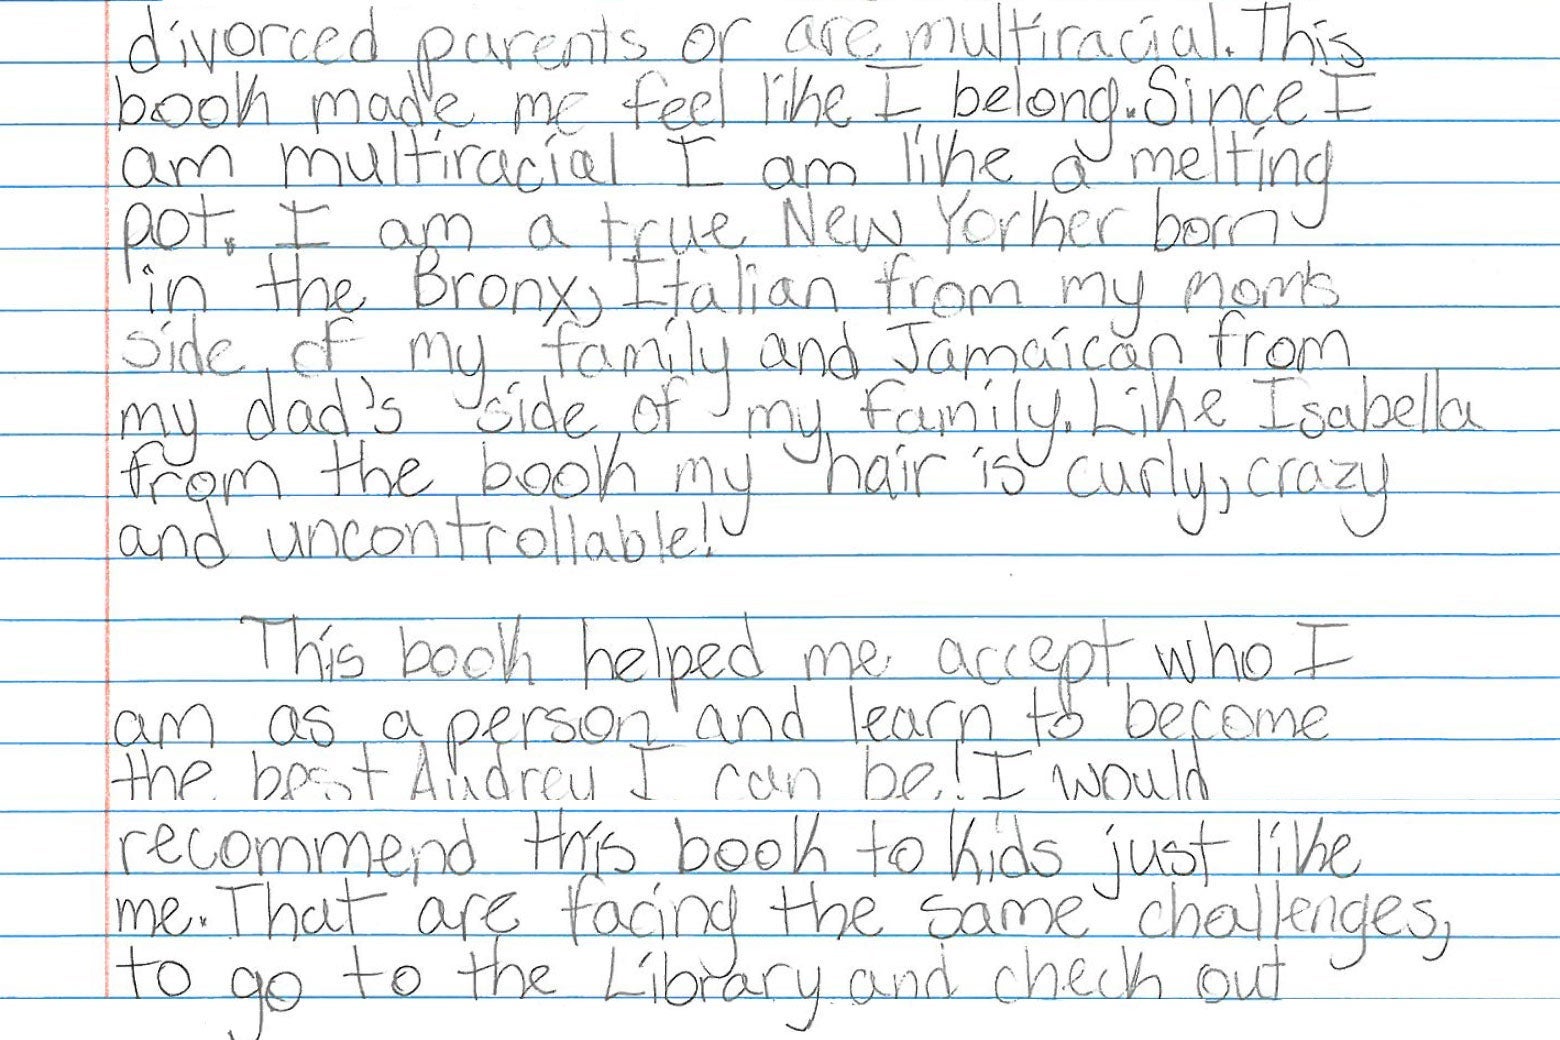 divorced parents or are multiracial. This
book made me feel like I belong. Since I
am multiracial I am like a melting
pot. I am a true New Yorker born
in the Bronx, Italian from my mom's
side of my family and Jamaican from
my dad's side of my family. Like Isabella
from the book my hair is curly, crazy
and uncontrollable!
This book helped me accept who I
am as a person and learn to become
the best Audrey I can be! I would
recommend this book to kids just like
me. That are facing the same challenges,
to go to the Library and check out